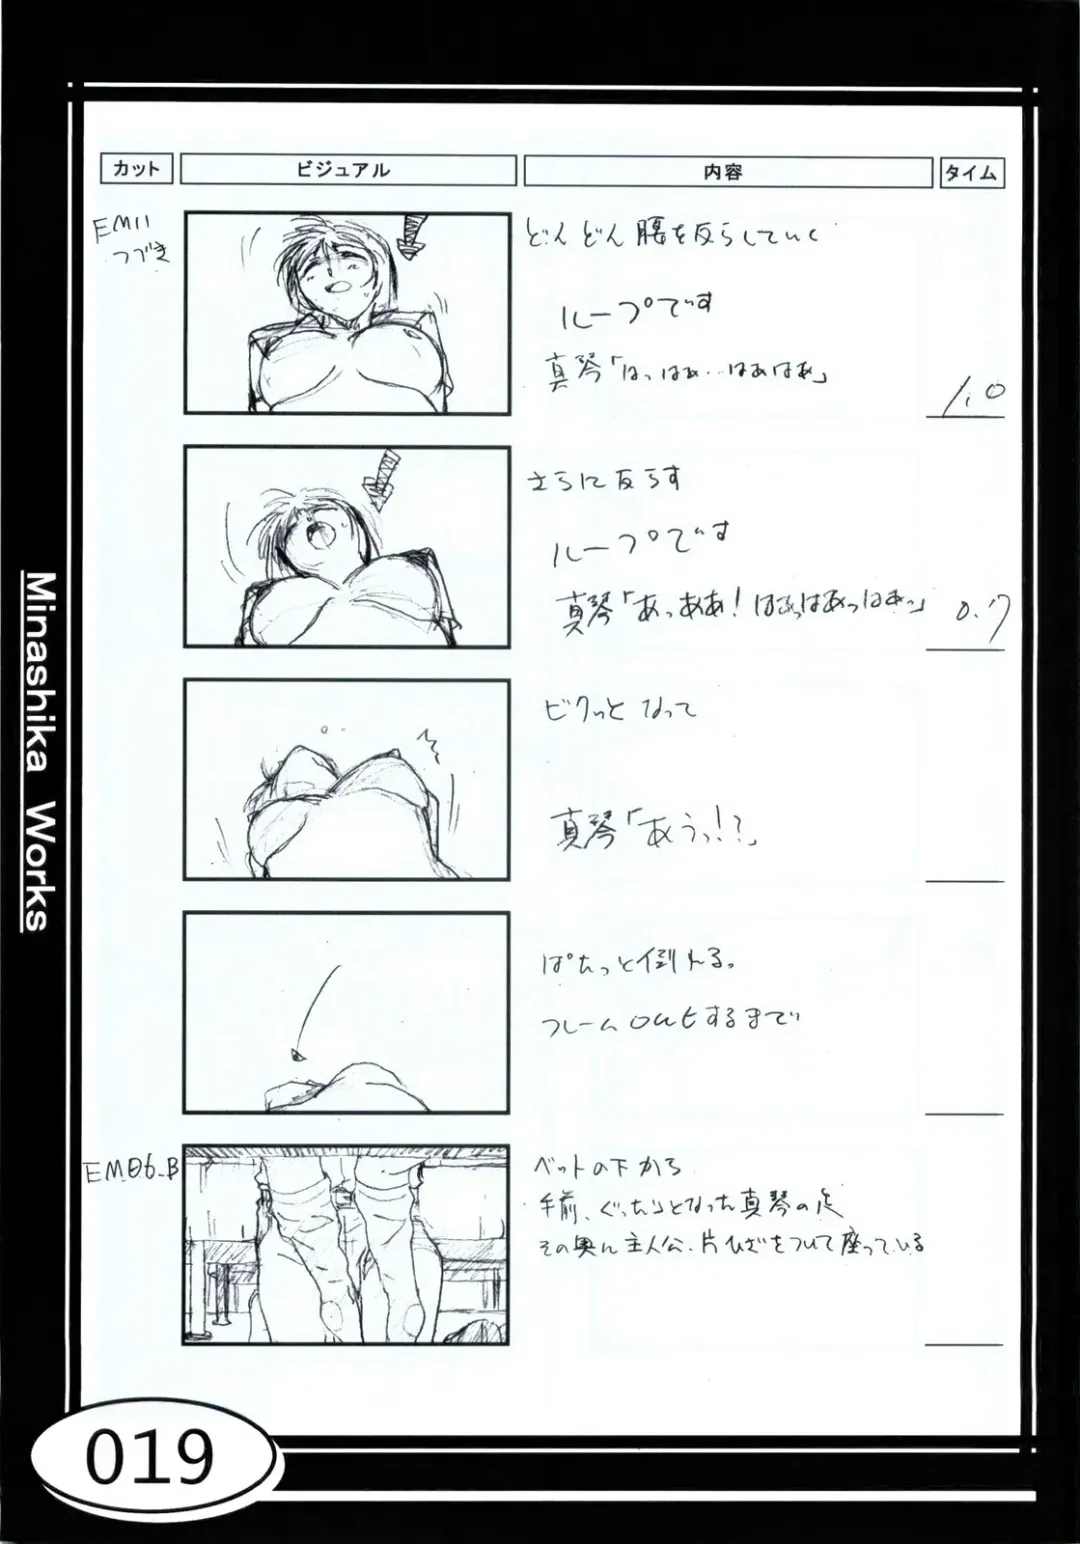 カット
ビジュアル
内容
タイム
EM11
つづき
どんどん腰を反らしていく
ループです
真琴「はっはぁ…はぁはぁ」
1.0
さらに反らす
ループです
真琴「あっああ!はぁっはあっはあっ」
0.7
ビクッとなって
真琴「あうっ!?」
ぱたっと倒れる。
フレームOutするまで
EM06_B
ベットの下から
手前、ぐったりとなった真琴の足
その奥に主人公、片ひざをついて座っている
Minashika Works
019